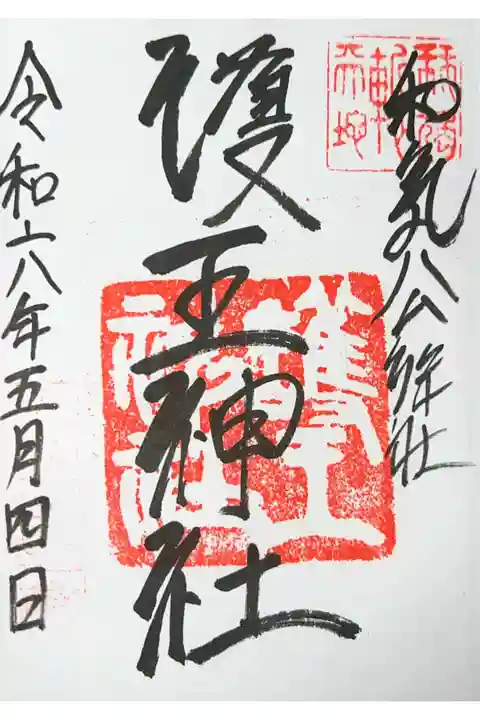 和氣公
護王神社
令和六年五月四日
護王
神社